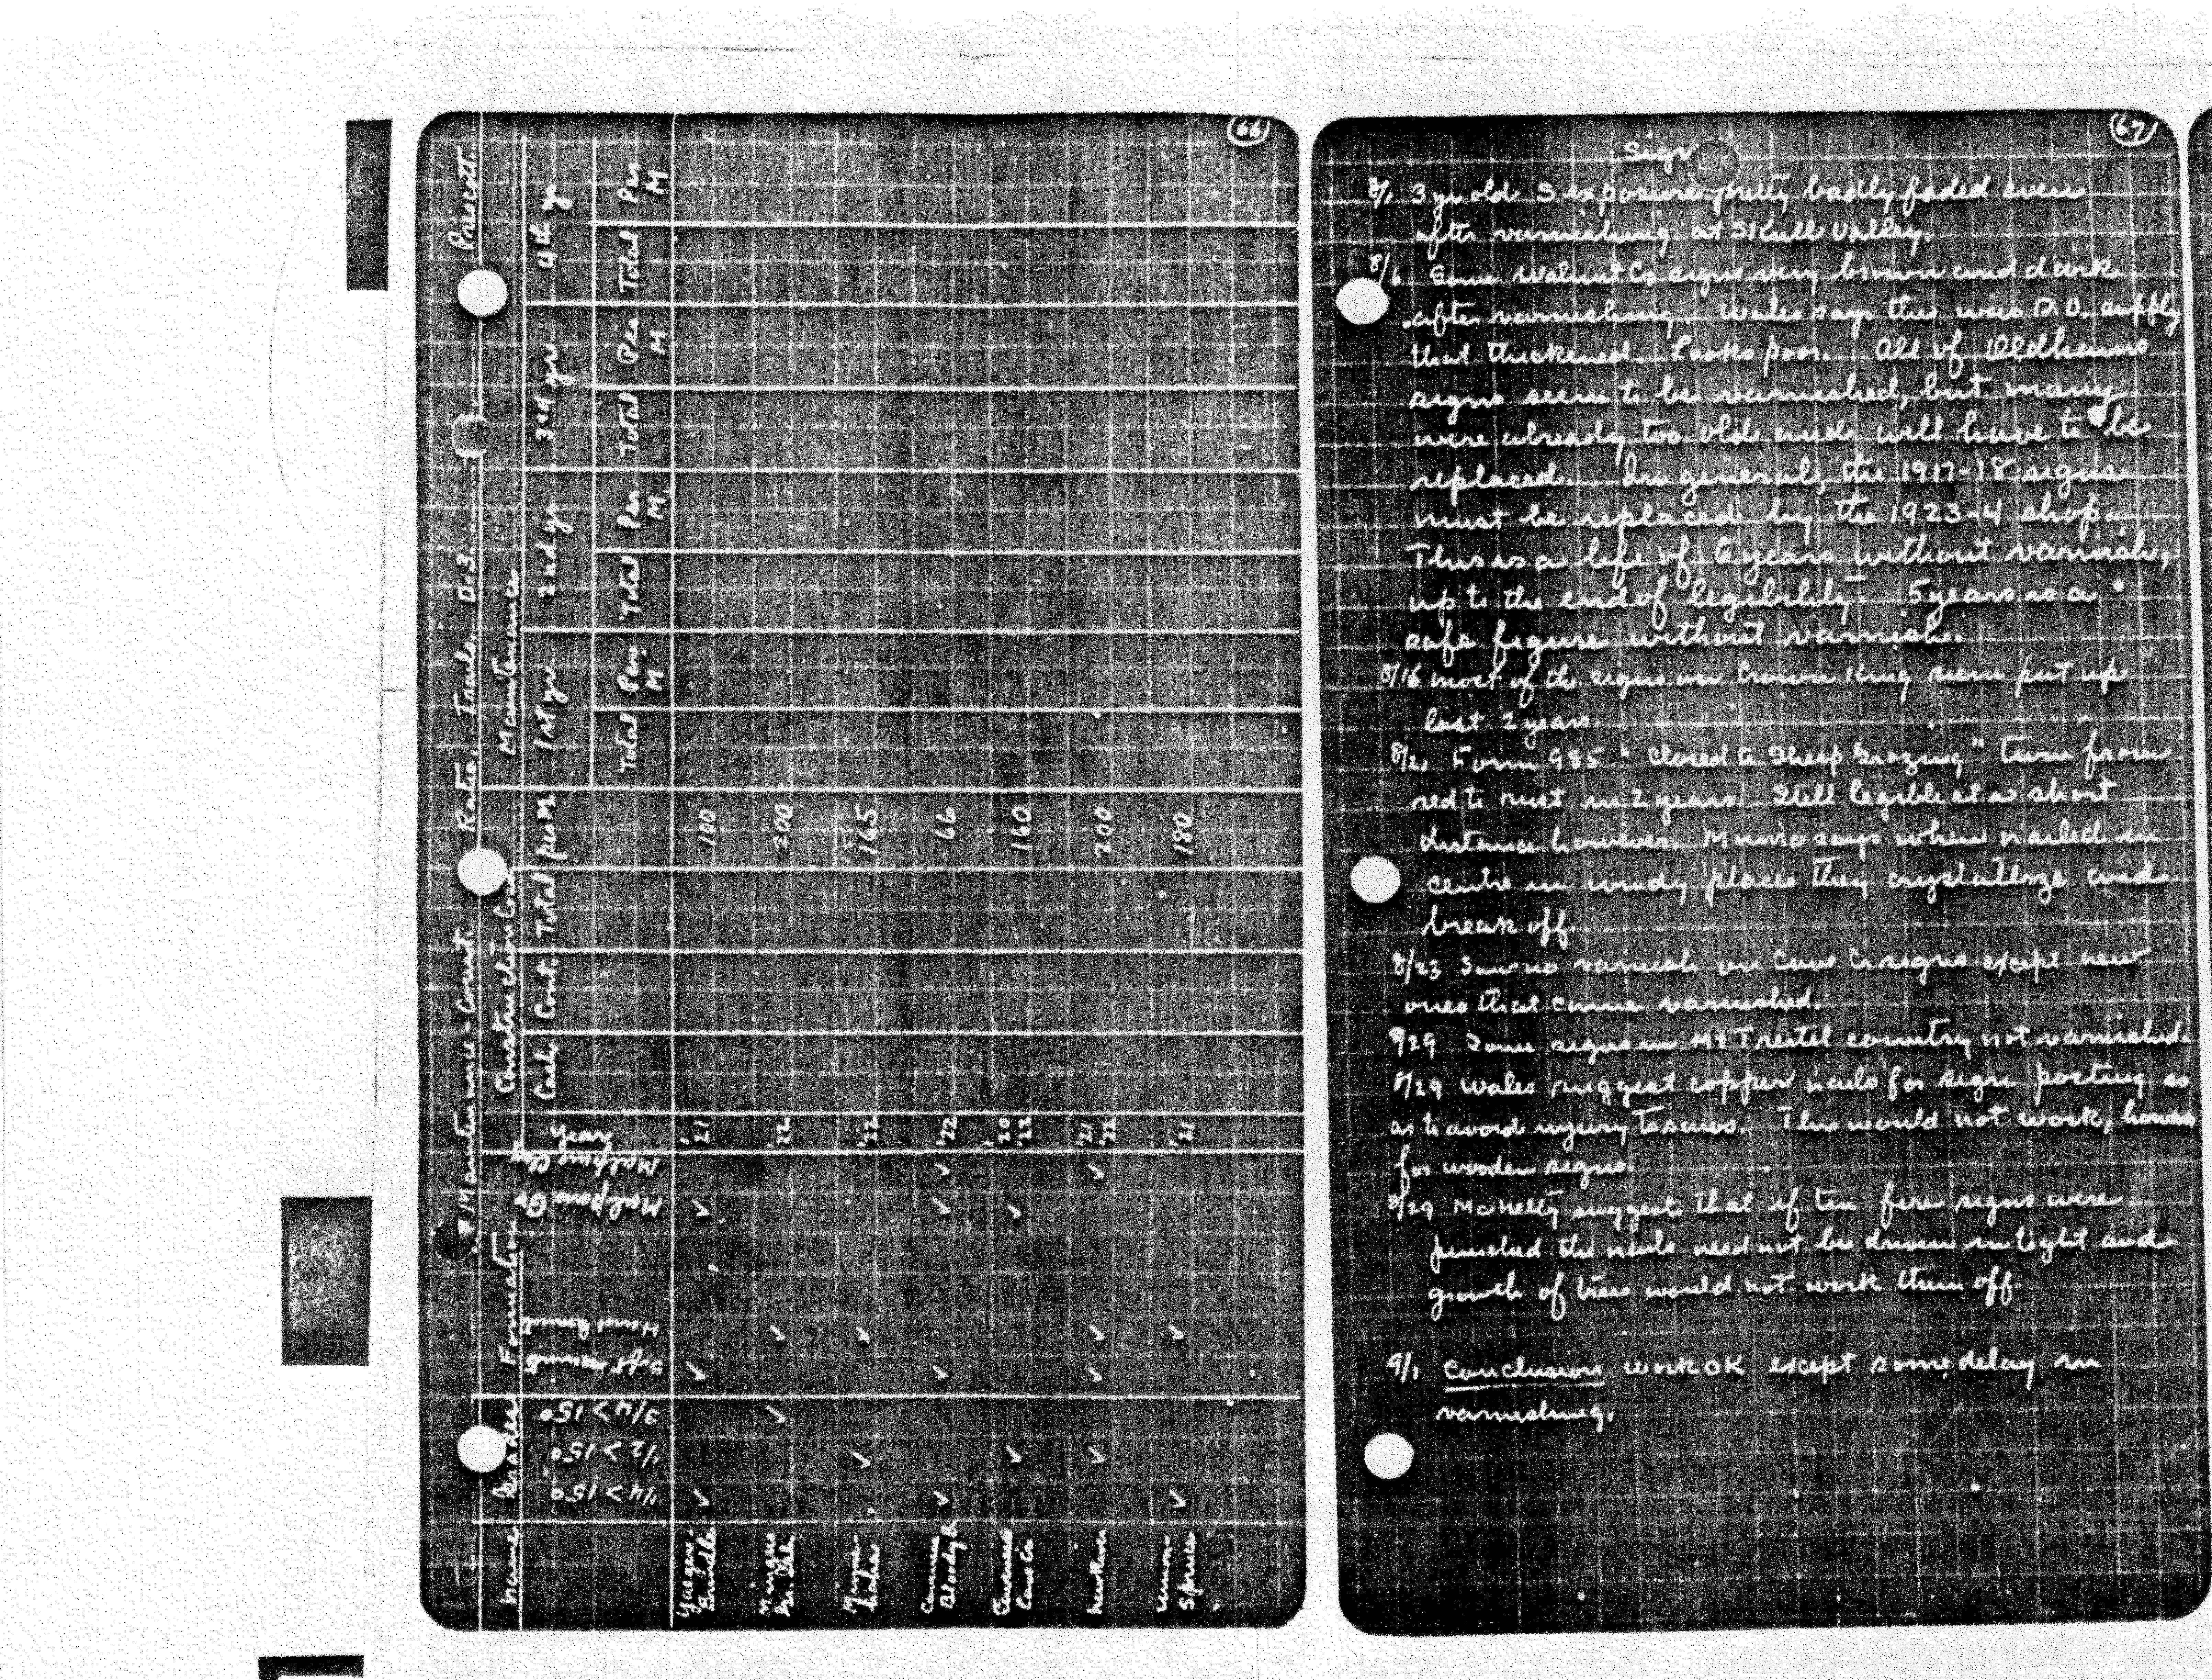 66
Maintenance - Const. Ratio. Trails. D-3. Prescott.
Name Grades Formation Year Construction Cost Maintenance
1/4 > 15° 1/2 > 15° 3/4 > 15° Soft Hard Malpais Gr Malpais Cash Cont. Total per M 1st yr 2nd yr 3rd yr 4th yr
Total Per M Total Per M Total Per M Total Per M
Yaeger- ✓ ✓ ✓ '21 100
Mingus ✓ ✓ '22 200
✓ ✓ '22 165
Bloody B ✓ ✓ ✓ ✓ '22 66
Cave Cr ✓ ✓ '20 '22 160
✓ ✓ ✓ ✓ '21 '22 200
Union- Spruce ✓ ✓ '21 180
67
Sign
8/1 3 yr old S exposure pretty badly faded even
after varnishing at Skull Valley.
8/6 Some Walnut Cr signs very brown and dark
after varnishing. Wales says this was D.O. supply
that thickened. Looks poor. All of Oldhams
signs seem to be varnished, but many
were already too old and will have to be
replaced. In general, the 1917-18 signs
must be replaced by the 1923-4 shop.
This is a life of 6 years without varnish,
up to the end of legibility. 5 years is a
safe figure without varnish.
8/16 Most of the signs on Crown King seem put up
last 2 years.
8/21 Form 985 "Closed to Sheep Grazing" turn from
red to rust in 2 years. Still legible at a short
distance however. Munro says when nailed in
centre in windy places they crystallize and
break off.
8/23 Saw no varnish on Cave Cr signs except new
ones that came varnished.
8/29 Some signs in Mt Tritel country not varnished.
8/29 Wales suggest copper nails for sign posting so
as to avoid injury to saws. This would not work, however
for wooden signs.
8/29 McNelty suggests that if tin fire signs were
punched the nails need not be driven in tight and
growth of trees would not work them off.
9/1 Conclusion work OK except some delay in
varnishing.